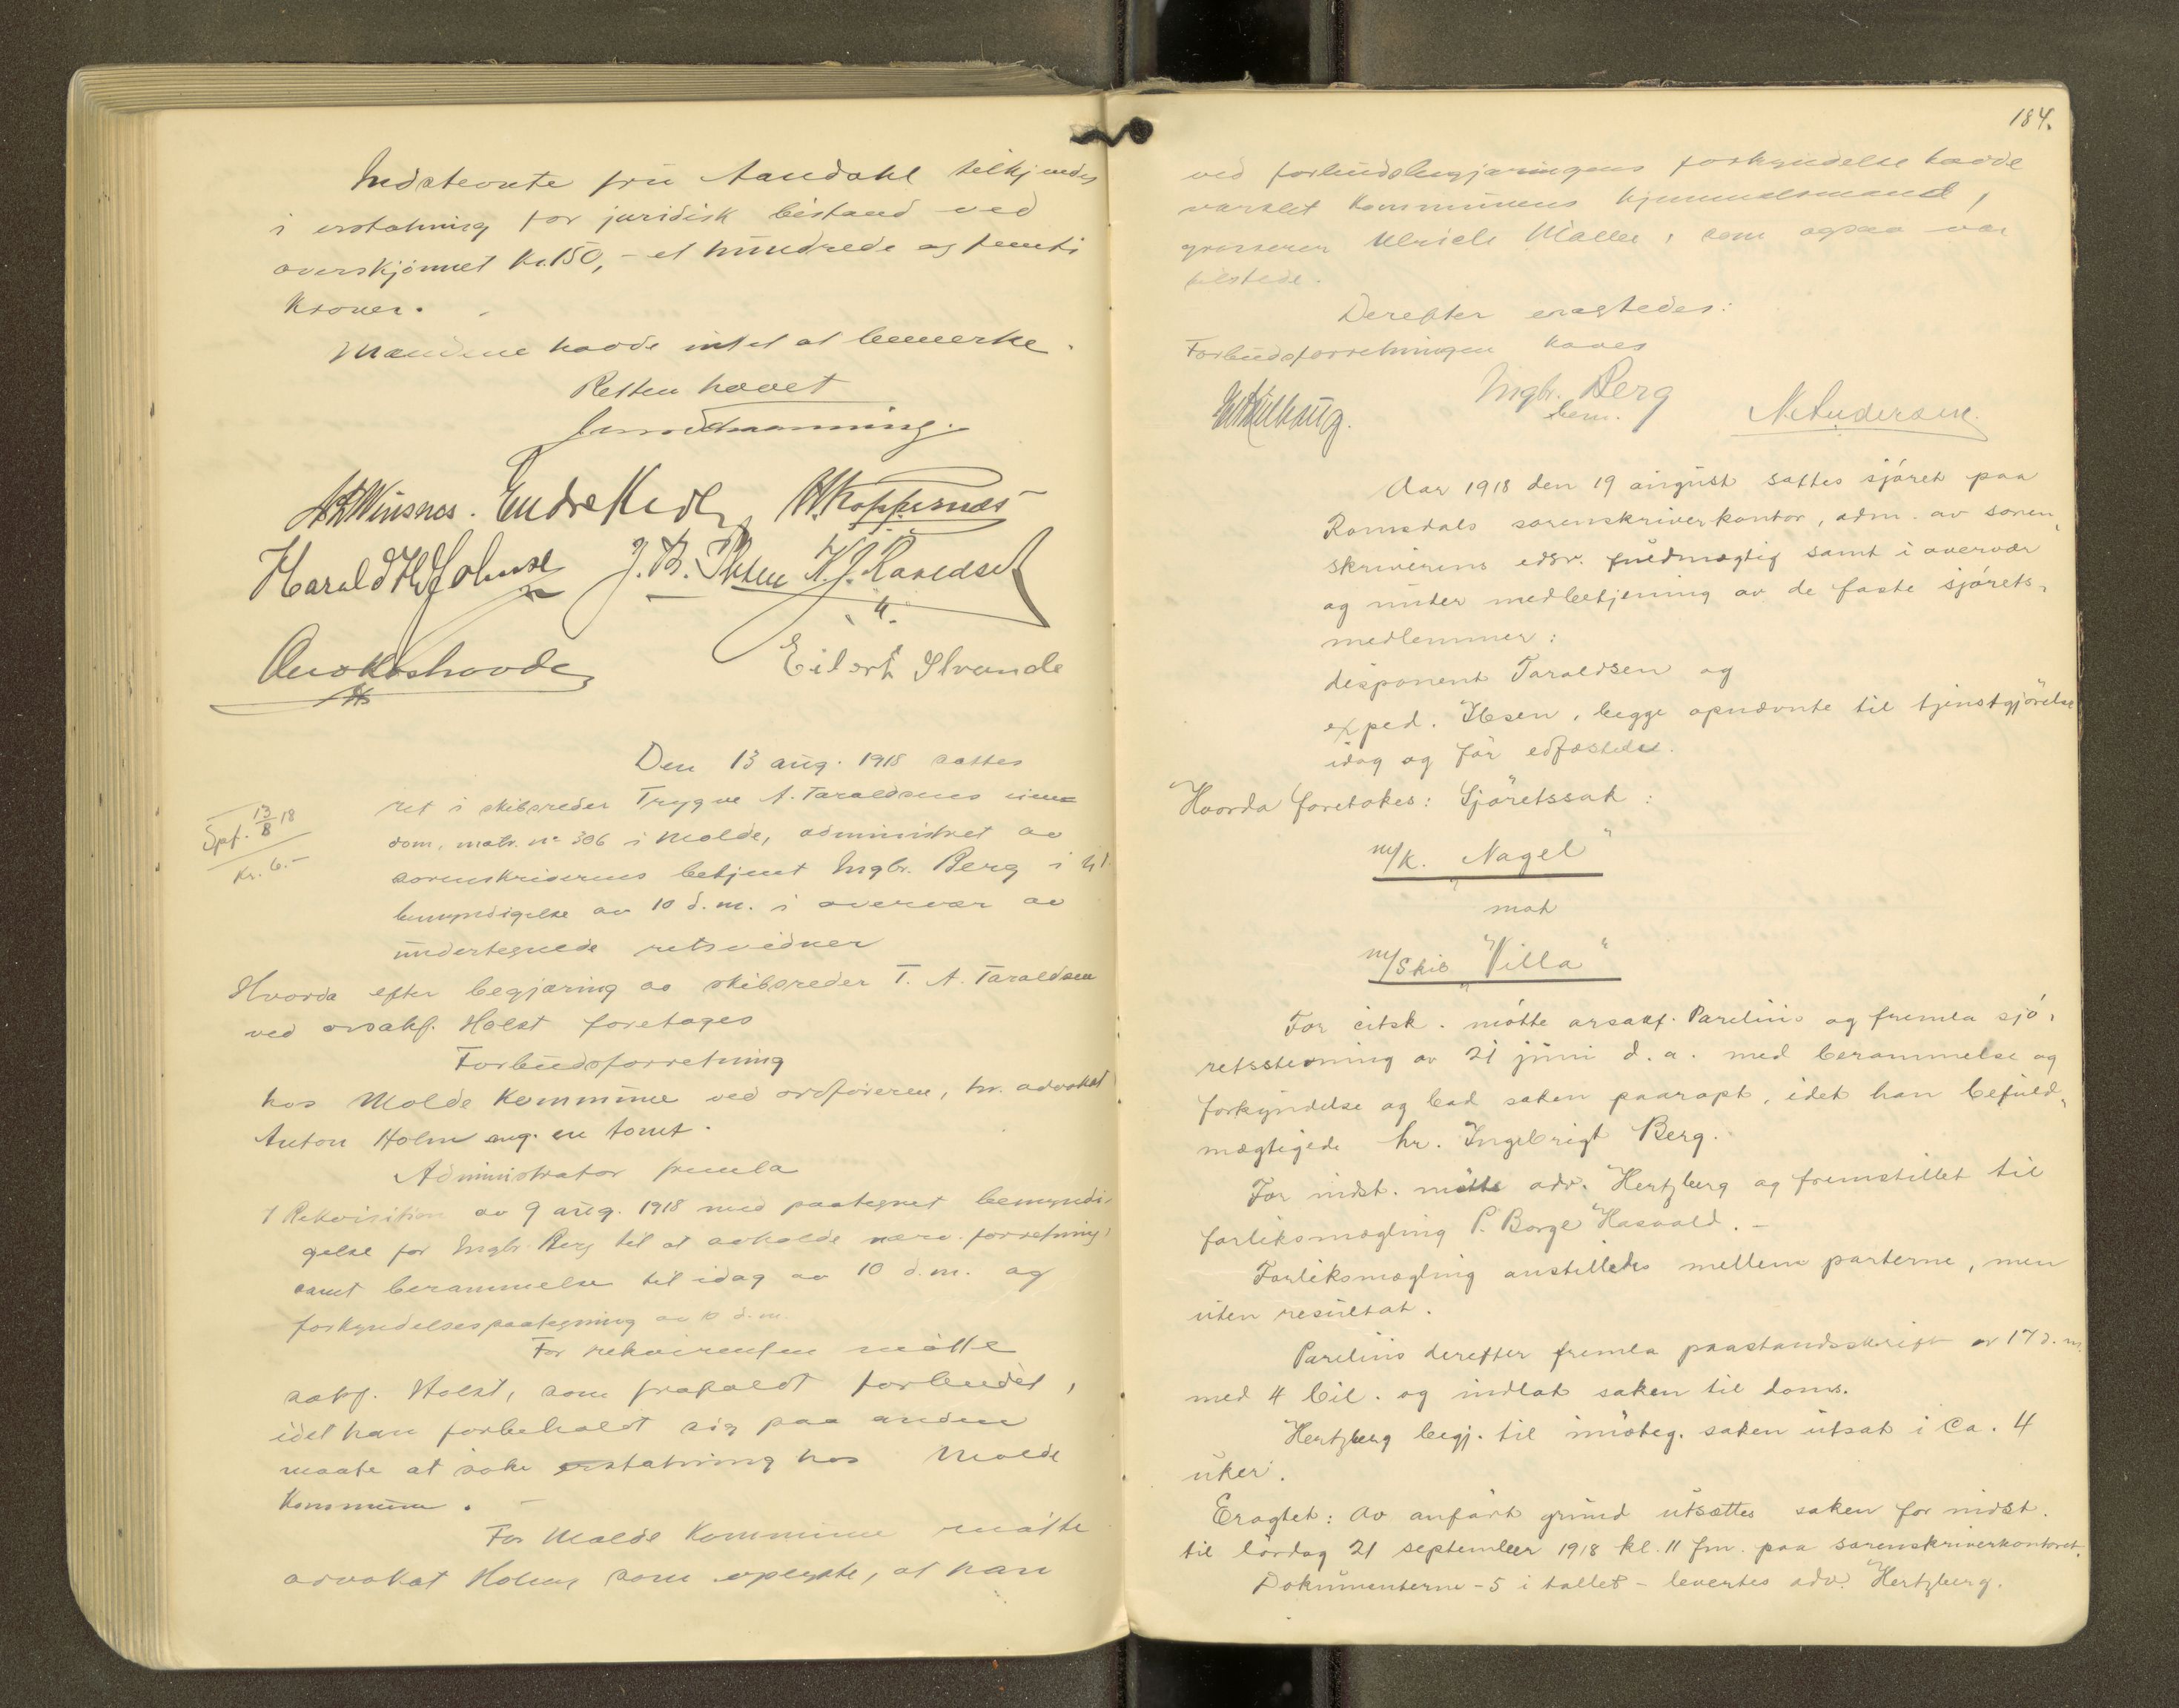 Indstevnte fru Aandahl tilkjendes
i erstatning for juridisk bistand ved
overskjönnet kr. 150,- et hundrede og femti
Kroner.
Mændene havde intet at bemerke.
Retten hævet
A. R. Winsnes. Endre W. Koppernæs
Harald H. Johnse J. B. K. J. Ravndset
Eilert Strande
Den 13 aug. 1918 sattes
ret i skibsreder Trygve A. Taraldsens eien=
dom, matr. nr 306 i Molde, administret av
sorenskriverens betjent Ingbr. Berg i hl.
bemyndigelse av 10 d.m. i overvær av
undertegnede retsvidner
Spf. 13/8 18
Kr. 6.-
Hvorda efter begjæring av skibsreder T. A. Taraldsen
ved orsakf. Holst foretages
Forbudsforretning
hos Molde Kommune ved ordföreren, hr. advokat
Anton Holm ang. en tomt.
Administrator fremla
1 Rekvisition av 9 aug. 1918 med paategnet bemyndi-
gelse for Ingbr. Berg til at avholde nærv. forretning,
samt berammelse til idag av 10 d.m. og
forkyndelsespaategning av 10 d.m.
For rekvirenten mötte
sakf. Holst, som frafaldt forbudet,
idet han forbeholdt sig paa anden
maate at söke erstatning hos Molde
Kommune. -
For Molde Kommune mötte
advokat Holm som oplyste, at han
184.
ved forbudsbegjæringens forkyndelse havde
varslet Kommunens hjemmelsmand,
grosserer Ulrich Möller, som ogsaa var
tilstede.
Derefter eragtedes:
Forbudsforretningen hæves
Ingbr. Berg
bem.
N. Andersen.
Aar 1918 den 19 august sattes sjöret paa
Romsdals sorenskriverkontor, adm. av soren,
skriverens edsv. fuldmægtig samt i overvær
og under medbetjening av de faste sjörets,
medlemmer:
disponent Taraldsen og
exped. Ibsen, begge opnævnte til tjenstgjörelse
idag og för edfæstedes.
Hvorda foretokes: Sjöretssak:
m/k. "Nagel"
mot
m/skib "Villa"
For citsk. mötte orsakf. Parelius og fremla sjö,
retsstevning av 21 juni d.a. med berammelse og
forkyndelse og bad saken paaropt, idet han befuld,
mægtigede hr. Ingebrigt Berg.
For indst. mötte adv. Hertzberg og fremstillet til
forliksmægling P. Borge Hasvold. -
Forliksmægling anstilledes mellem parterne, men
uten resultat.
Parelius derefter fremla paastandsskrift av 17 d.m.
med 4 bil. og indlot saken til doms.
Hertzberg begj. til imöteg. saken utsat i ca. 4
uker.
Eragtet: Av anfört grund utsættes saken for indst.
til lördag 21 september 1918 kl. 11 fm. paa sorenskriverkontoret.
Dokumenterne - 5 i tallet - levertes adv. Hertzberg.